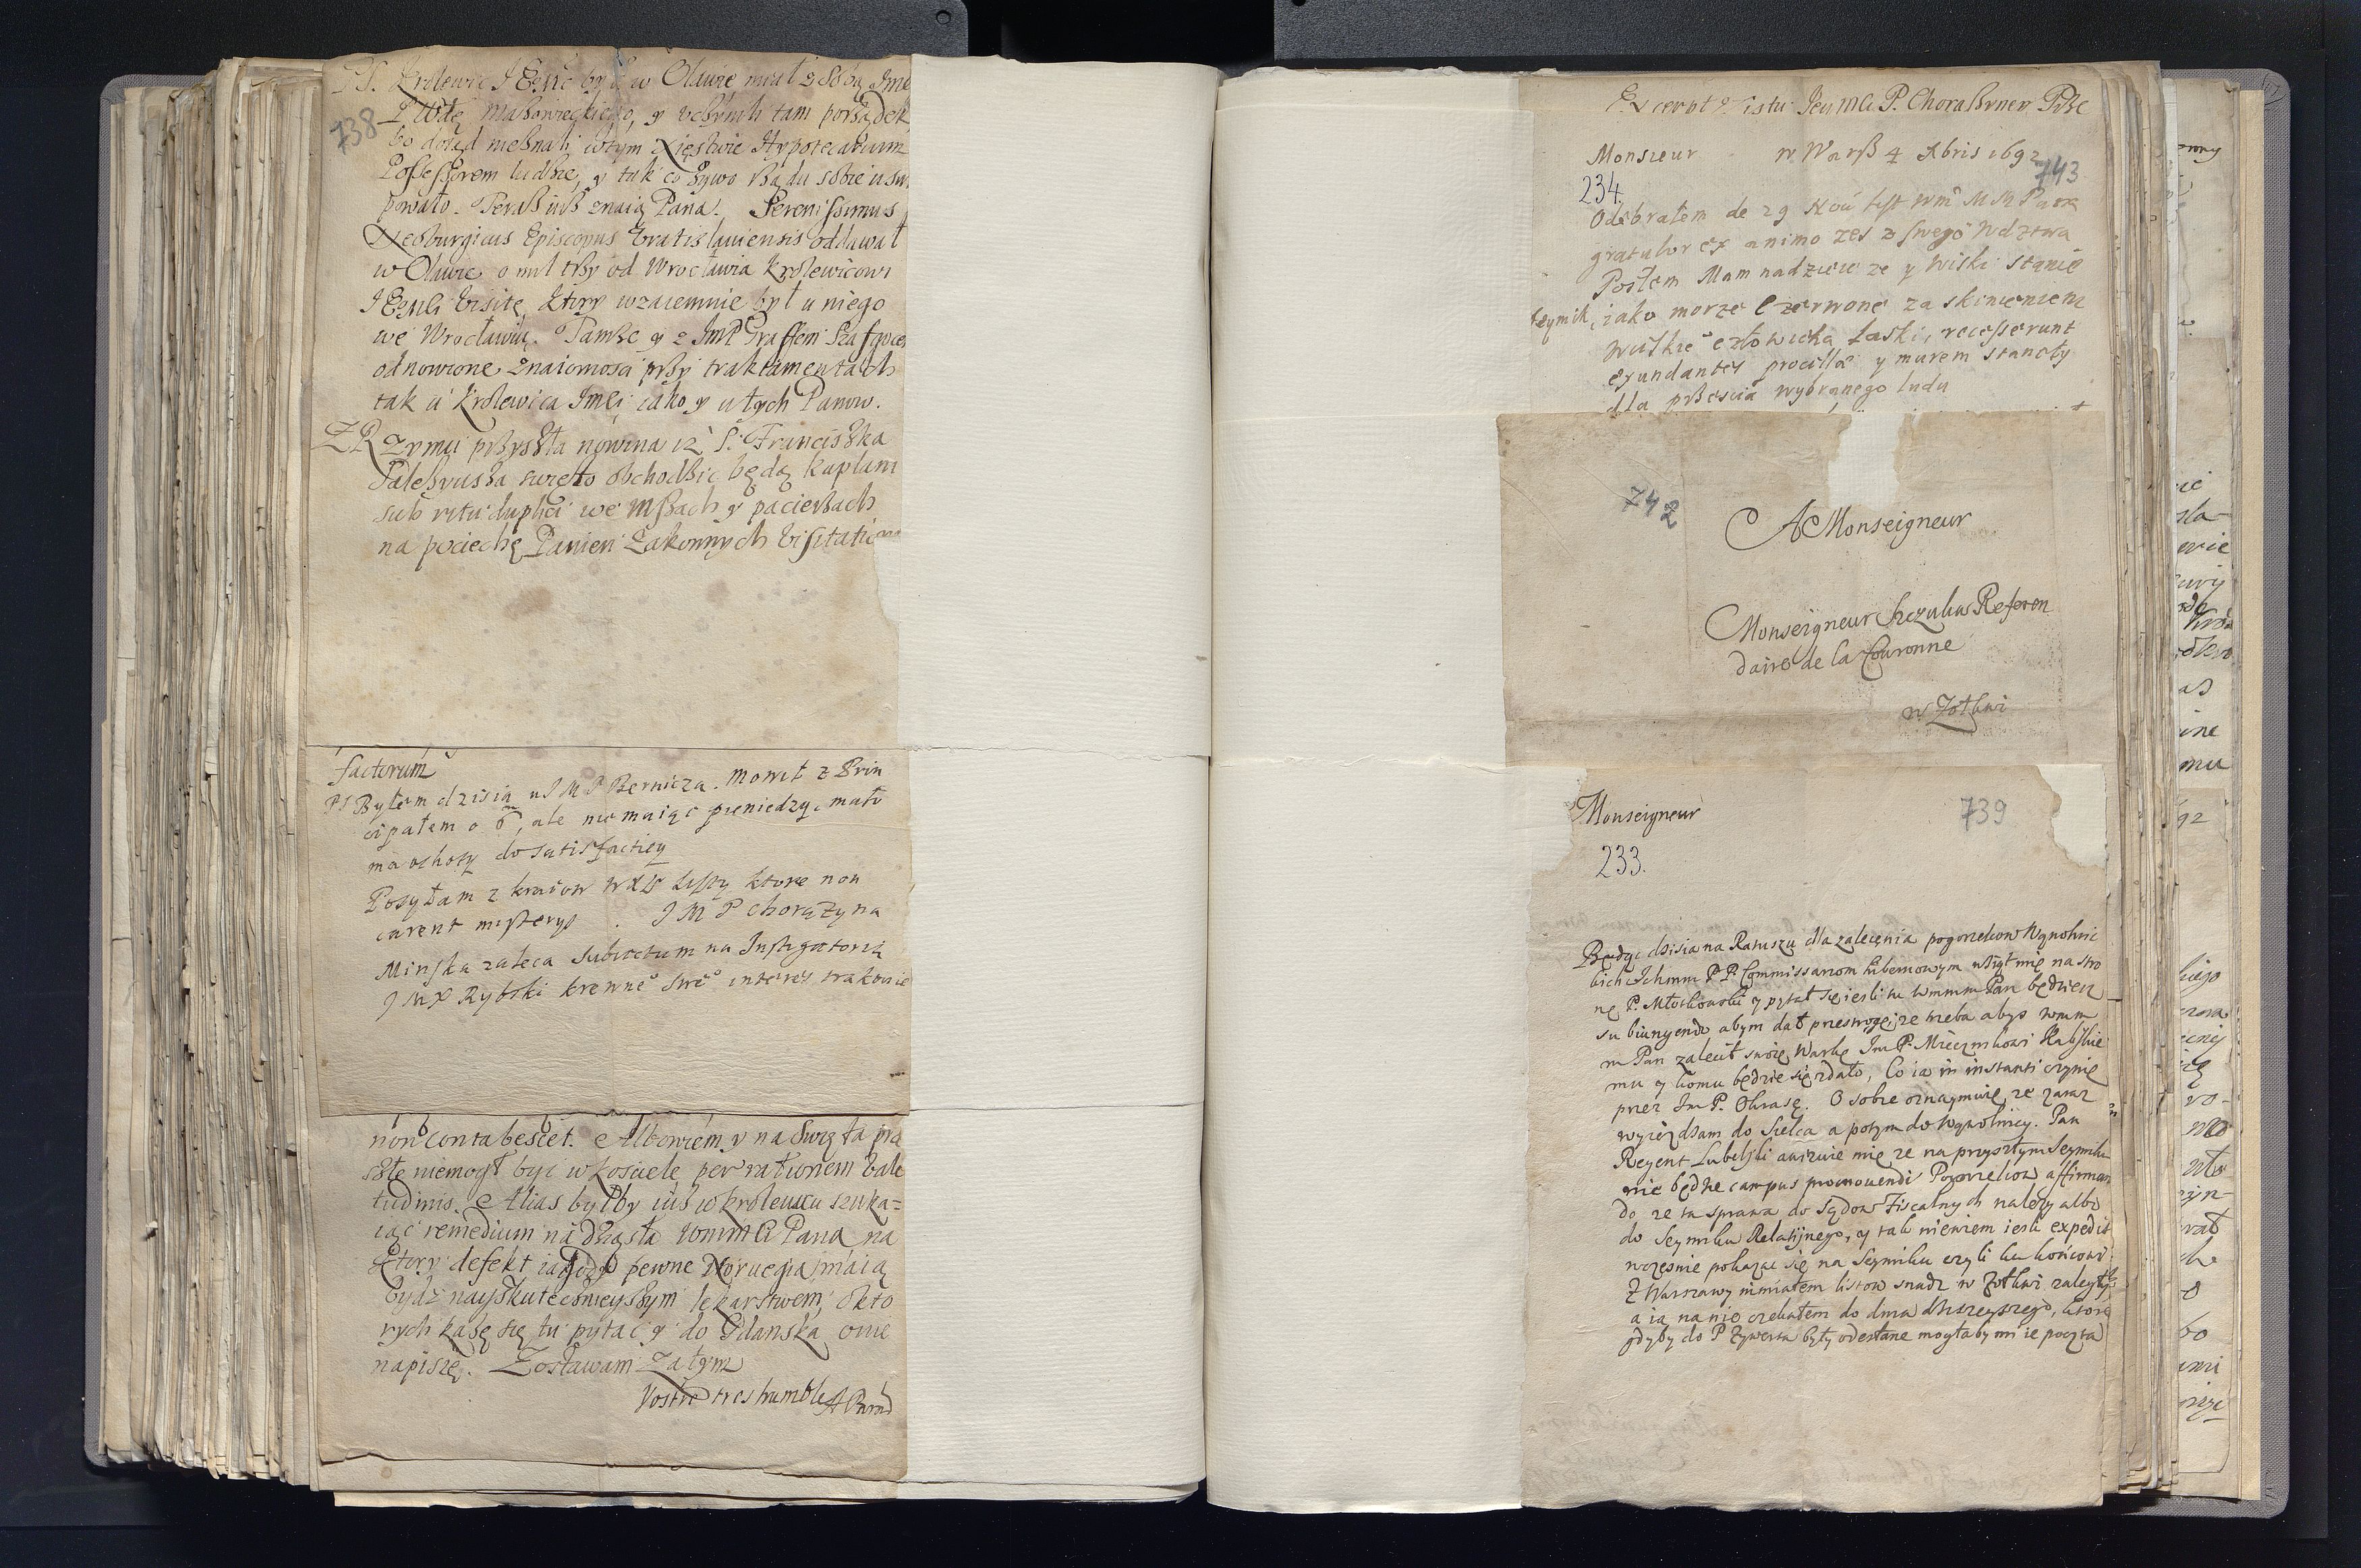 PS. Krolewic JEMć był w Oławie miał z sobą Jme
738
P Wdę Mazowieckiego, y uczynili tam porządek
bo dotąd nieznali w tym Xięstwie Hypotecarium
Possessorem ludzie, y tak co żywo rządu sobie
powało. Teraz iuż znaią Pana. Serenissimus
Neoburgicus Episcopus Vratislauiensis oddawał
w Oławie o mil trzy od Wrocławia Krolewicowi
JEMCi Visitę, ktory wzaiemnie był u niego
we Wrocławiu. Tamże y z JmP Graffem
odnowione znaiomosci przy traktamentach
tak u Krolewica Jmći iako y u tych Panow.
Z Rzymu przyszła nowina iż S. Franciszka
Salezyusza swięto obchodzić będą kapłani
sub ritu duplici we Mszach y pacierzach
na pociechę Panien Zakonnych Visitatio
factorum
PS Byłem dzisia u J M P Bernicza. Mowił z Prin
cipałem o, ale nie maiąc pieniedzy, mało
ma ochoty do satisfactiey
Posyłam z kraiow listy ktore non
carent misterys. J M P Chorążyna
Minska zaleca subiectum na Instigatorią
J M P Rybski krewne swe interes trakuie
non contabescet. Albowiem y na Swięta
szłe niemogł być w kosciele per rationem vale
tudinis. Alias byłby iuż w krolewcu szuka-
iąc remedium na dziąsła WmMCi Pana na
ktory defekt iagody pewne Noruegia maią
bydź nayskutecznieyszym lekarstwem, o kto
rych każę się tu pytać y do Gdanska o nie
napiszę. Zostawam zatym
Vostre tres humble
Excerpt z listu Jeymci P. Chorążyney
Monsieur w Warsz 4 Xbris 1692
743
234.
Odebrałem de 29 Nou list Wm M M Pana
gratulor ex animo żes z swego Wdztwa
Posłem. Mam nadzieie że y Wiski stanie
seymik, iako morze czerwone za skinieniem
człowieka laski, recesserunt
exundantes procellae y murem stanęły
dla przescia wybranego ludu
742
A Monseigneur
Monseigneur Szczuka Referen
daire de la Couronne
w Zołkwi
Monseigneur
739
233.
Będąc dzisia na Ratuszu dla zalecenia pogorzelcow Wąwolnic
kich Ichmm P.P. Commissarzom hibernowym wziął mię na stro
nę P. Młockowski y pytał się iesli tu Wmmm Pan będziesz
subiungendo abym dał przestrogę, że trzeba abys wmm
m Pan zalecił swoię Warkę Jm P. Miecznikowi Rawskie
mu y komu będzie się zdało, Co ia in instanti czynię
przez Jm P. Okrasę. O sobie oznaymuię, że zaraz
wyieżdżam do Sielca a potym do Wąwolnicy. Pan
Regent Lubelski awizuie mię że na przyszłym Seymiku
nie będzie campus promouendi Pogorzelcow affirman
do że ta sprawa do Sądow Fiscalnych należy albo
do Seymiku Relatijnego, y tak niewiem iesli expedit
wczesnie pokazać się na Seymiku czyli ku koncowi
Z Warszawy niemiałem listow snadz w Zołkwi zaległy
a ia na nie czekałem do dnia dzisieyszego, ktore
gdyby do P. Zywerta były odesłane mogłaby mi ie poczta